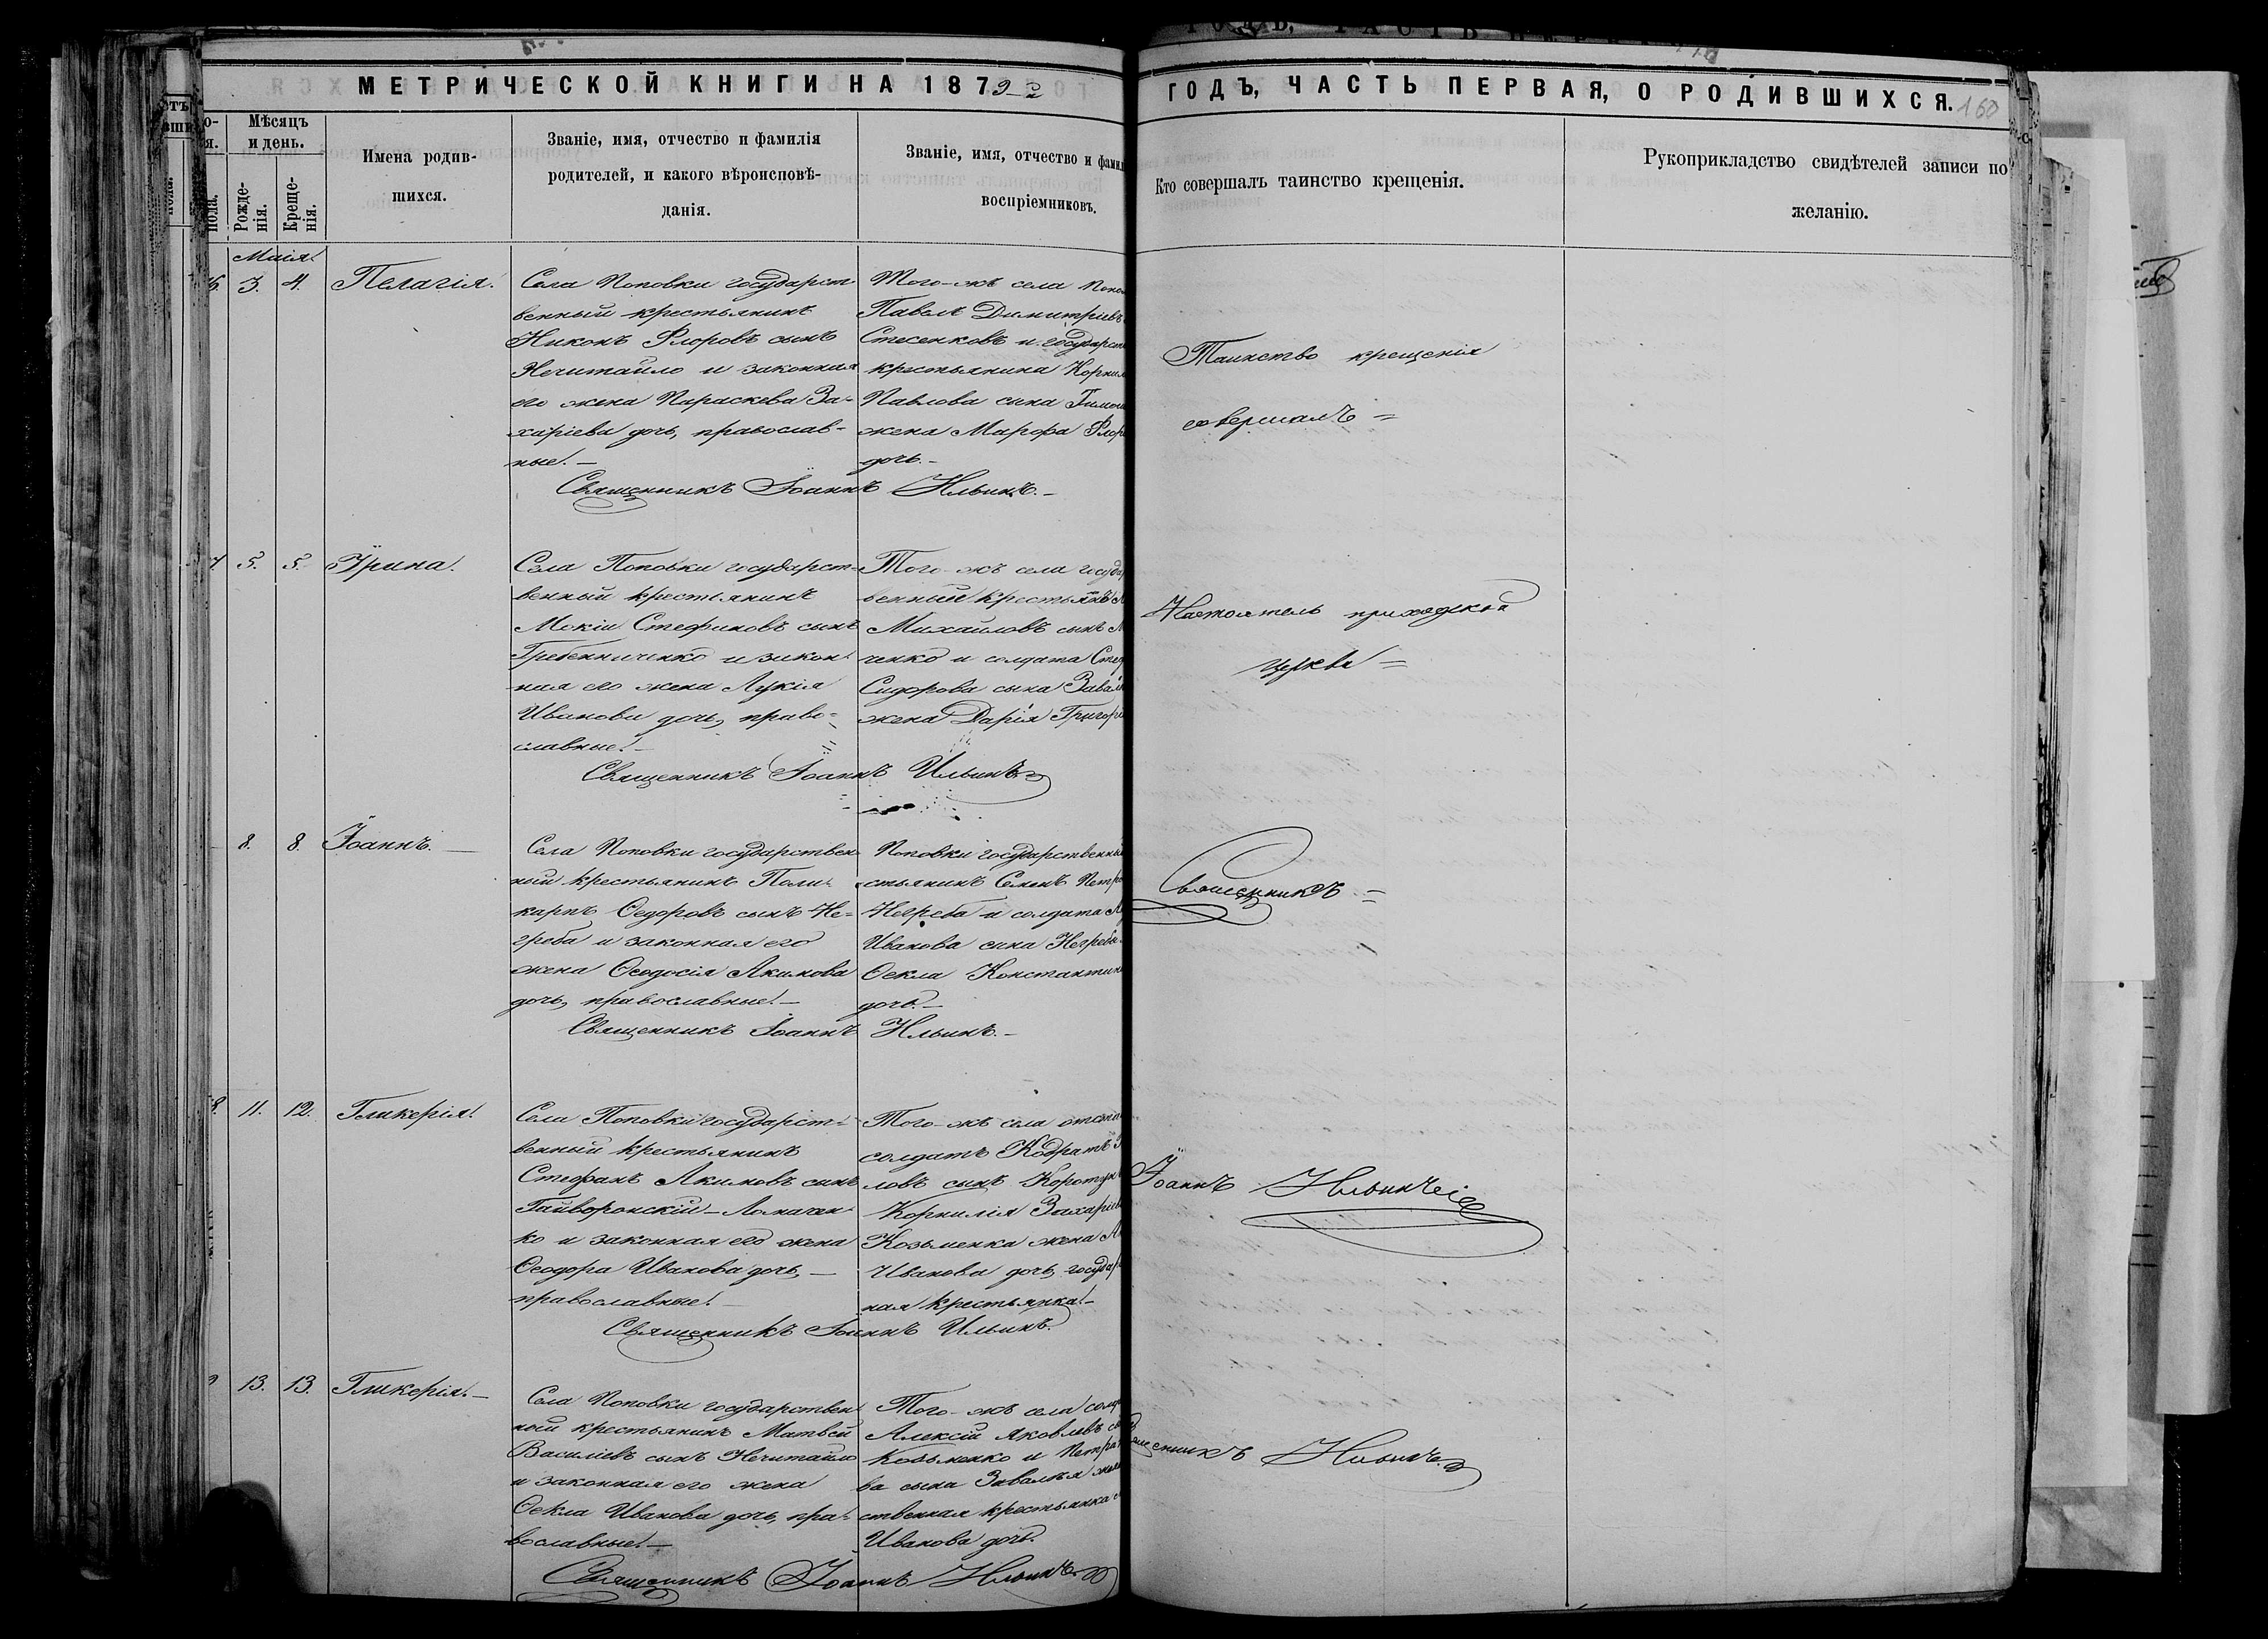 МЕТРИЧЕСКОЙ КНИГИ НА 1879
ГОДЪ, ЧАСТЬ ПЕРВАЯ, О РОДИВШИХСЯ.
160
Мѣсяцъ
и день.
Рожде-
нія.
Креще-
нія.
Имена родив-
шихся.
Званіе, имя, отчество и фамилія
родителей, и какого вѣроисповѣ-
данія.
Званіе, имя, отчество и фами
воспріемниковъ.
Кто совершалъ таинство крещенія.
Рукоприкладство свидѣтелей записи по
желанію.
Маія.
3. 4. Пелагія.
Села Поповки государст-
венный крестьянинъ
Никонъ Флоровъ сынъ
Нечитайло и законная
его жена Параскева За-
харіева дочь, православ-
ные. –
Того-жъ села
Павелъ Димитріевъ
Стесенковъ и государст
крестьянина Корнил
Павлова сына
жена Марфа Флор
дочь. –
Священникъ Іоаннъ Ильинъ. –
5. 5. Ірина.
Села Поповки государст-
венный крестьянинъ
Мокій Стефановъ сынъ
Гребенниченко и закон-
ная его жена Лукія
Иванова дочь, право-
славные. –
Того-жъ села госуда
венный крестьянинъ
Михайловъ сынъ
ченко и солдата Стеф
Сидорова сына
жена Дарія Григорі
Священникъ Іоаннъ Ильинъ
8. 8. Іоаннъ. –
Села Поповки государствен-
ный крестьянинъ Поли-
карпъ Ѳедоровъ сынъ Не-
греба и законная его
жена Ѳеодосія Акимова
дочь, православные. –
Поповки государственный
стьянинъ Семенъ Петро
Негреба и солдата
Иванова сына Негребы
Ѳекла Константин
дочь. –
Священникъ Іоаннъ Ильинъ. –
11. 12. Гликерія.
Села Поповки государст-
венный крестьянинъ
Стефанъ Акимовъ сынъ
Гайворонскій-Ломачен-
ко и законная его жена
Ѳеодора Иванова дочь, –
православные. –
Того-жъ села
солдатъ Кодратъ
ловъ сынъ
Корнилія Захаріев
Козьменка жена
Иванова дочь, госуда
ная крестьянка. –
Священникъ Іоаннъ Ильинъ.
13. 13. Гликерія. –
Села Поповки государствен-
ный крестьянинъ Матвѣй
Василіевъ сынъ Нечитайло
и законная его жена
Ѳекла Иванова дочь, пра-
вославные. –
Того-жъ села солда
Алексій Яковлевъ
Козьменко и Петра
ва сына
ственная крестьянка
Иванова дочь.
Священникъ Іоаннъ Ильинъ
Таинство крещенія
совершалъ =
Настоятель приходской
церкви =
Священникъ =
Іоаннъ Ильинъ
Священникъ Ильинъ